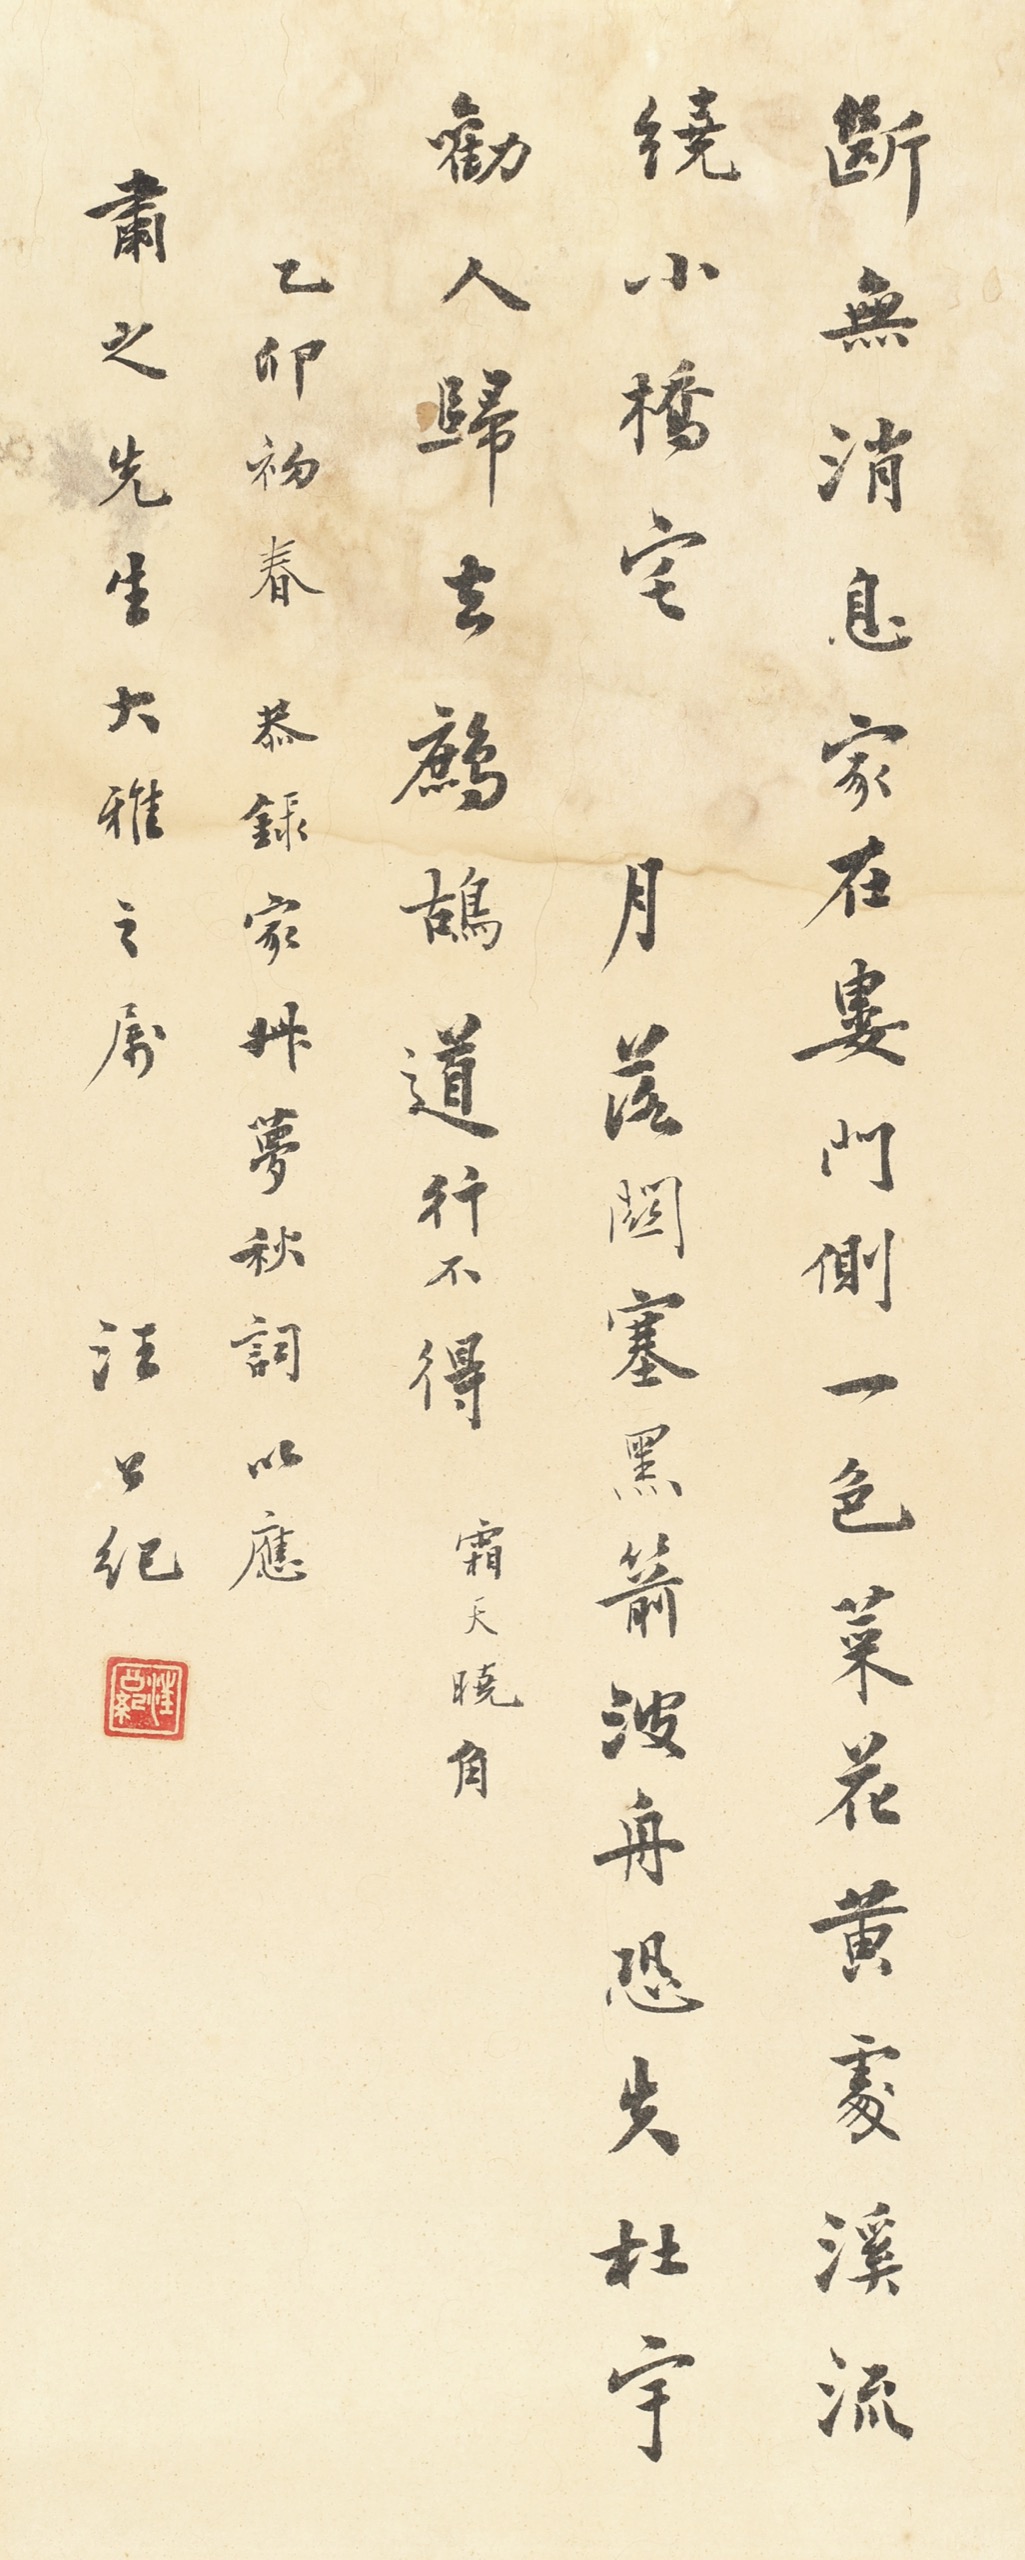 斷無消息家在婁門側一色菜花黃處溪流
繞小橋宅 月落關塞黑箭波舟恐失杜宇
勸人歸去鷓鴣道行不得 霜天曉角
乙卯初春 恭錄家艸夢秋詞以應
肅之先生大雅之屬 汪公紀
汪公紀